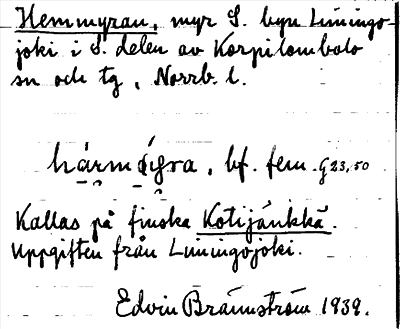 Hemmyran, myr S. byn Liningo-
joki i S. delen av Korpilombolo
sn och tg, Norrb. l.
bf. fem. G 23,50
Kallas på finska Kotijänkkä.
Uppgiften från Liningojoki.
Edvin Brännström 1939.